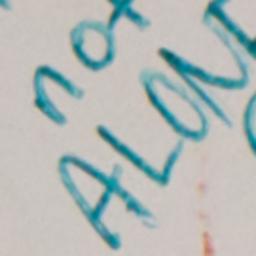 not
ALONE